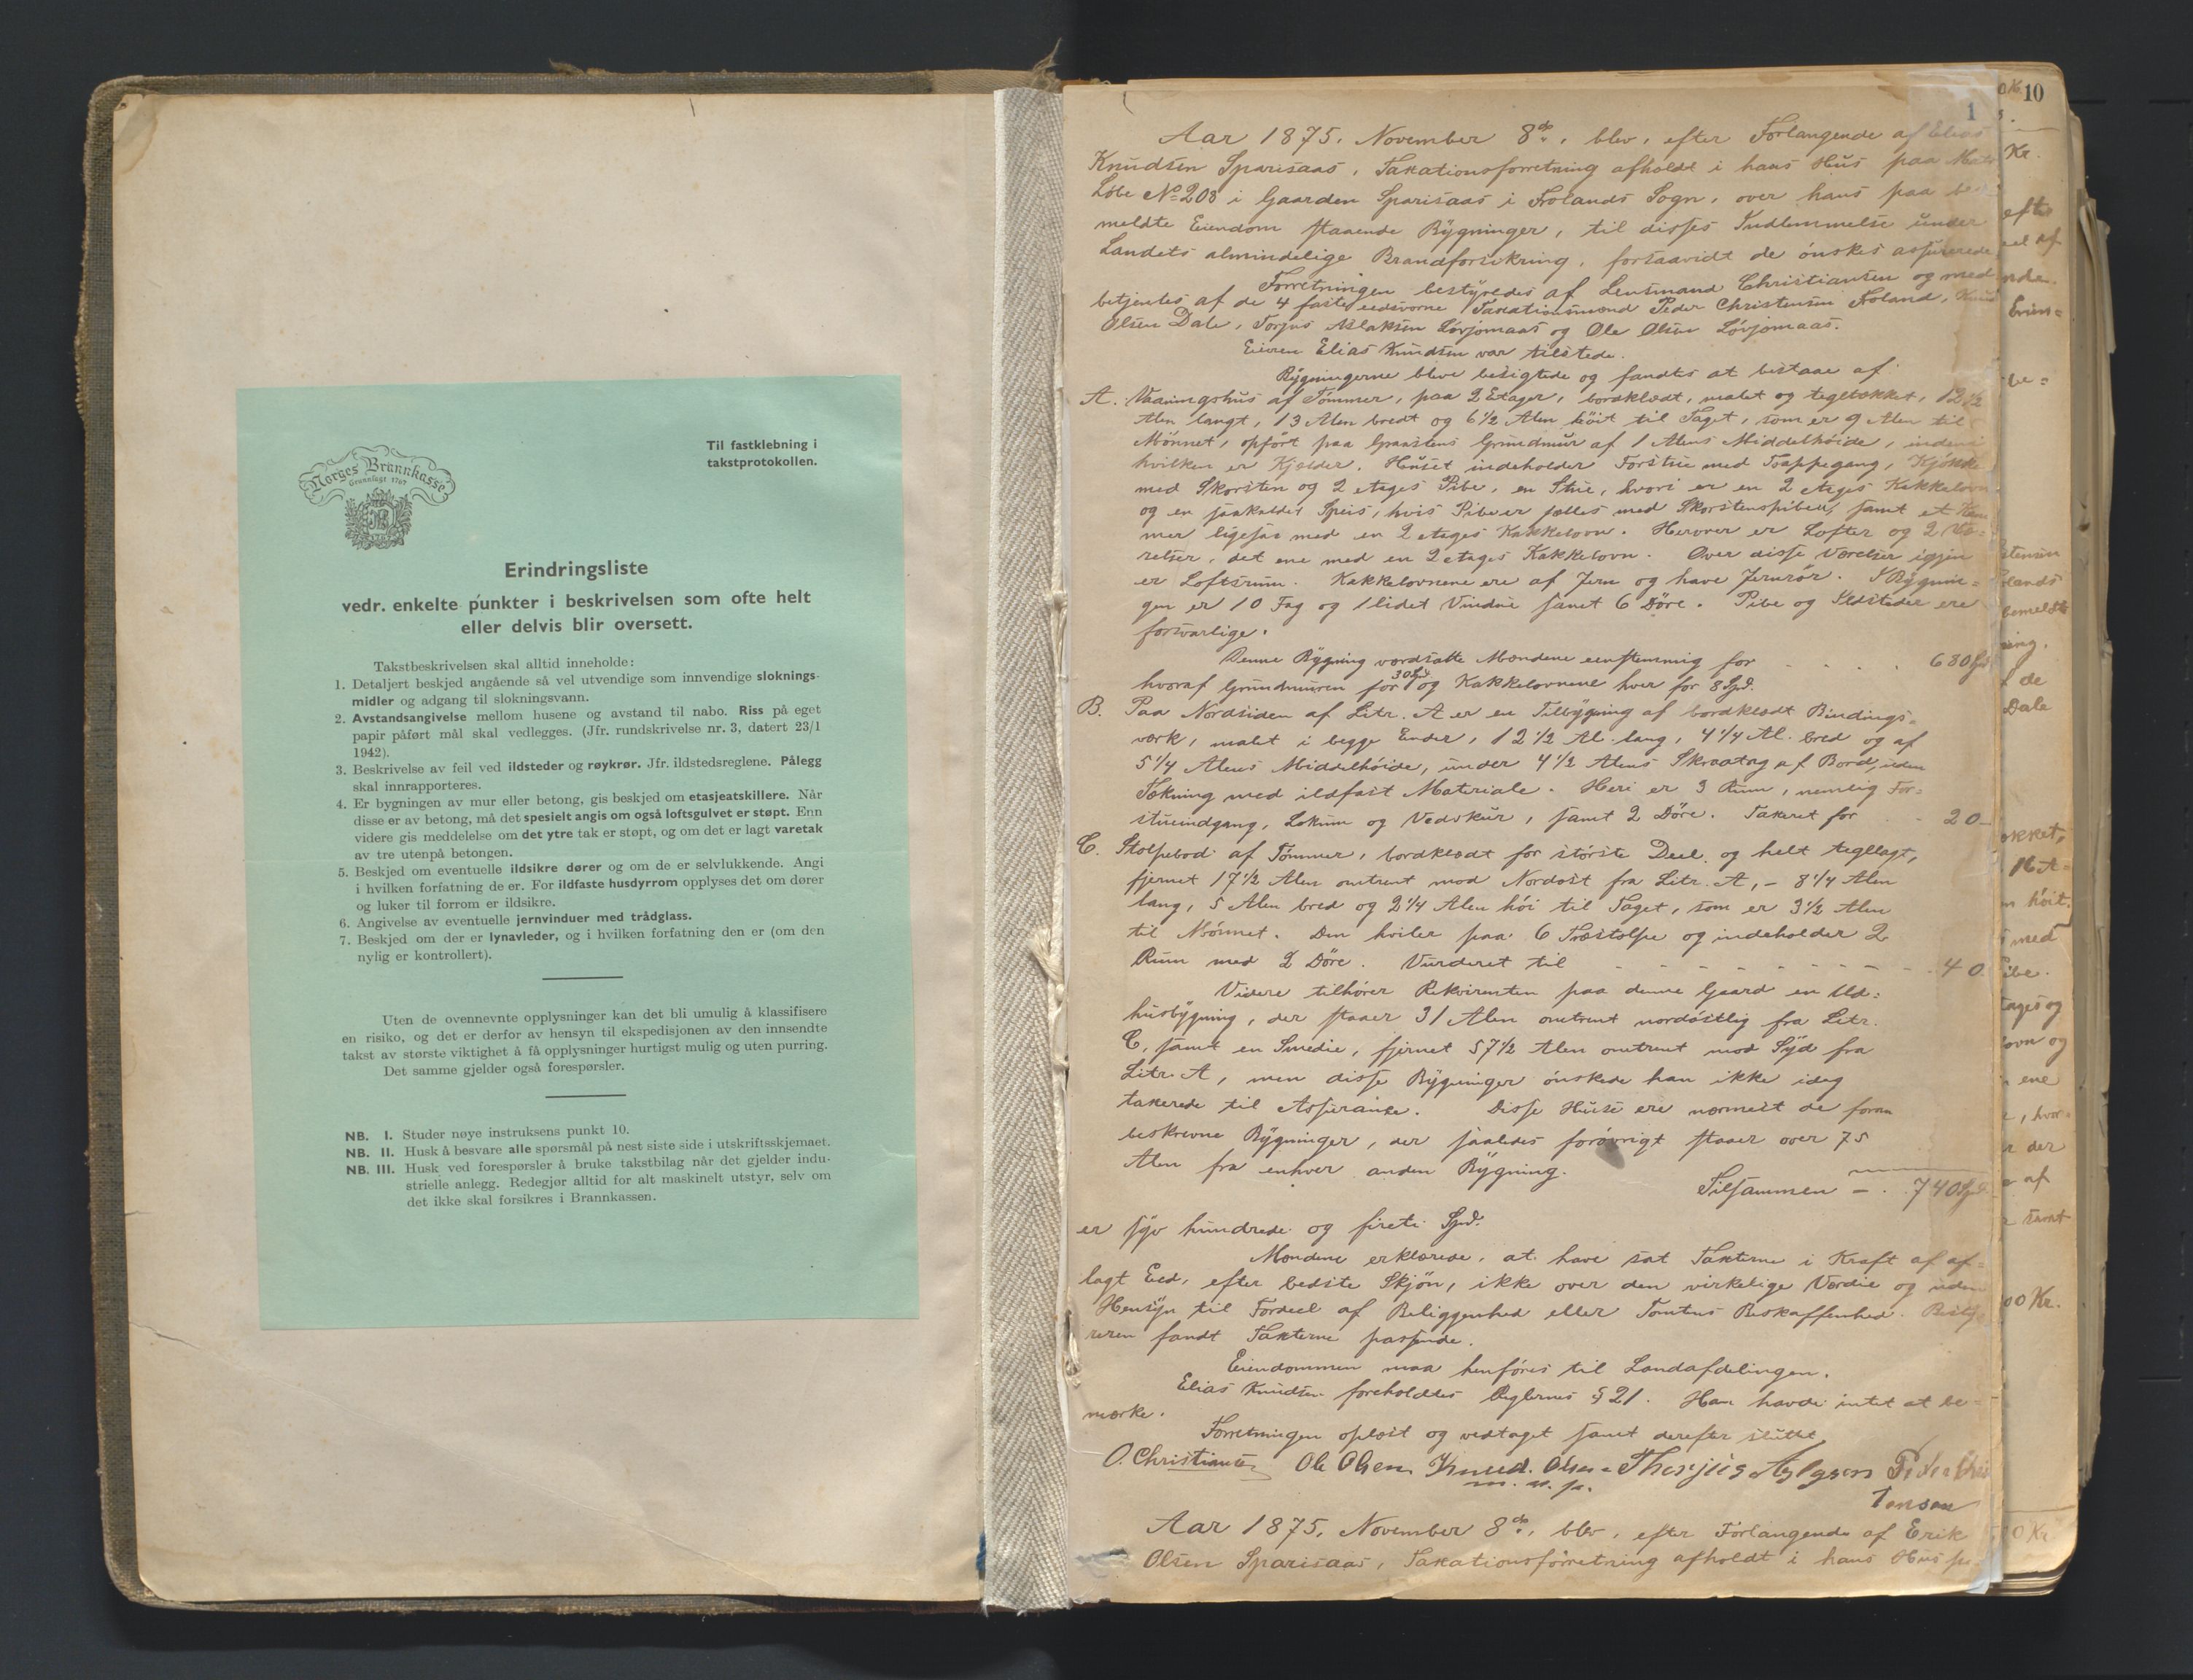 Til fastklebning i
takstprotokollen.
Norges Brannkasse
Grunnlagt 1767
Erindringsliste
vedr. enkelte punkter i beskrivelsen som ofte helt
eller delvis blir oversett.
Takstbeskrivelsen skal alltid inneholde:
1. Detaljert beskjed angående så vel utvendige som innvendige sloknings-
midler og adgang til slokningsvann.
2. Avstandsangivelse mellom husene og avstand til nabo. Riss på eget
papir påført mål skal vedlegges. (Jfr. rundskrivelse nr. 3, datert 23/1
1942).
3. Beskrivelse av feil ved ildsteder og røykrør. Jfr. ildstedsreglene. Pålegg
skal innrapporteres.
4. Er bygningen av mur eller betong, gis beskjed om etasjeatskillere. Når
disse er av betong, må det spesielt angis om også loftsgulvet er støpt. Enn
videre gis meddelelse om det ytre tak er støpt, og om det er lagt varetak
av tre utenpå betongen.
5. Beskjed om eventuelle ildsikre dører og om de er selvlukkende. Angi
i hvilken forfatning de er. For ildfaste husdyrrom opplyses det om dører
og luker til forrom er ildsikre.
6. Angivelse av eventuelle jernvinduer med trådglass.
7. Beskjed om der er lynavleder, og i hvilken forfatning den er (om den
nylig er kontrollert).
Uten de ovennevnte opplysninger kan det bli umulig å klassifisere
en risiko, og det er derfor av hensyn til ekspedisjonen av den innsendte
takst av største viktighet å få opplysninger hurtigst mulig og uten purring.
Det samme gjelder også forespørsler.
NB. I. Studer nøye instruksens punkt 10.
NB. II. Husk å besvare alle spørsmål på nest siste side i utskriftsskjemaet.
NB. III. Husk ved forespørsler å bruke takstbilag når det gjelder indu-
strielle anlegg. Redegjør alltid for alt maskinelt utstyr, selv om
det ikke skal forsikres i Brannkassen.
1
Aar 1875, November 8de, blev, efter Forlangende af Elias
Knudsen Sparisaas, Taxationsforretning afholdt i hans Hus paa Matr.
Löbe No 208 i Gaarden Sparisaas i Frolands Sogn, over hans paa be-
meldte Eiendom staaende Bygninger, til disses Indlemmelse under
Landets almindelige Brandforsikring, forsaavidt de önskes assurerede
Forretningen bestyredes af Lensmand Christiansen og med
betjentes af de 4 faste eedsvorne Taxationsmænd Peder Christensen Froland, Knud
Olsen Dale, Torjus Aslaksen Lövjomaas og Ole Olsen Lövjomaas.
Eieren Elias Knudsen var tilstede.
Bygningerne bleve besigtede og fandtes at bestaae af
A. Vaaningshus af Tömmer, paa 2 Etager, bordklædt, malet og teglækket, 12 1/2
Alen langt, 13 Alen bredt og 6 1/2 Alen höit til Taget, som er 9 Alen til
Mönnet, opfört paa Graastens Grundmur af 1 Alens Middelhöide, indeni
hvilken er Kjælder. Huset indeholder Forstue med Trappegang, Kjökken
med Skorsten og 2 etages Pibe, en Stue, hvori er en 2 etages Kakkelovn
og en saakaldet Speis, hvis Pibe er fælles med Skorstenspiben, samt et Kam-
mer ligesaa med en 2 etages Kakkelovn. Herover er Lofter og 2 Væ-
relser, det ene med en 2 etages Kakkelovn. Over disse Værelser igjen
er Loftsrum. Kakkelovnene ere af Jern og have Jernrör. I Bygnin-
gen er 10 Fag og 1 lidet Vindue samt 6 Döre. Pibe og Ildsteder ere
forsvarlige.
Denne Bygning værdsatte Mændene eenstemmig for - - - - 680 Spd
hvoraf Grundmuren for 30 Spd og Kakkelovnene hver for 8 Spd.
B. Paa Nordsiden af Litr. A er en Tilbygning af bordklædt Bindings-
værk, malet i begge Ender, 12 1/2 Al. lang, 4 1/4 Al. bred og af
5 1/4 Alens Middelhöide, under 4 1/2 Alens Skraatag af Bord, uden
Tækning med ildfast Materiale. Heri er 3 Rum, nemlig For-
stueindgang, Lokum og Vedskur, samt 2 Döre. Taxeret for - - 20 -
C. Stolpebod af Tömmer, bordklædt for störste Deel og helt tegllagt,
fjernet 17 1/2 Alen omtrent mod Nordost fra Litr. A, - 8 1/4 Alen
lang, 5 Alen bred og 2 1/4 Alen höi til Taget, som er 3 1/2 Alen
til Mönnet. Den hviler paa 6 Træstolpe og indeholder 2
Rum med 2 Döre. Vurderet til - - - - - - - - 40.
Videre tilhörer Rekvirenten paa denne Gaard en Ud-
husbygning, der staaer 31 Alen omtrent nordöstlig fra Litr.
C, samt en Smedie, fjernet 57 1/2 Alen omtrent mod Syd fra
Litr. A, men disse Bygninger önskede han ikke idag
taxerede til Assurance. Disse Huse ere nærmest de foran
beskrevne Bygninger, der saaledes forövrigt staaer over 75
Alen fra enhver anden Bygning.
Tilsammen - . 740 Spd.
er syv hundrede og fireti Spd.
Mændene erklærede, at have sat Taxterne i Kraft af af-
lagt Eed, efter bedste Skjön, ikke over den virkelige Værdie og uden
Hensyn til Fordeel af Beliggenhed eller Tomtens Beskaffenhed. Besty-
reren fandt Taxterne passende.
Eiendommen maa henföres til Landafdelingen.
Elias Knudsen foreholdtes Reglernes § 21. Han havde intet at be-
mærke.
Forretningen oplæst og vedtaget samt derefter sluttet.
O. Christiansen Ole Olsen Knud Olsen Thorjus Aslagsen Peder Chris
m. n. p. tensen
Aar 1875, November 8de, blev, efter Forlangende af Erik
Olsen Sparisaas, Taxationsforretning afholdt i hans Hus pa
10
Kr.
efter
eel af
nde.
Erien=
be=
stensen
olands
bemeldte
ning,
f de
Dale
ækket,
16 A=
n höit.
med
ibe.
tages og
ovn og
ene
, hvor-
r der
af
samt
00 Kr.
0 Kr